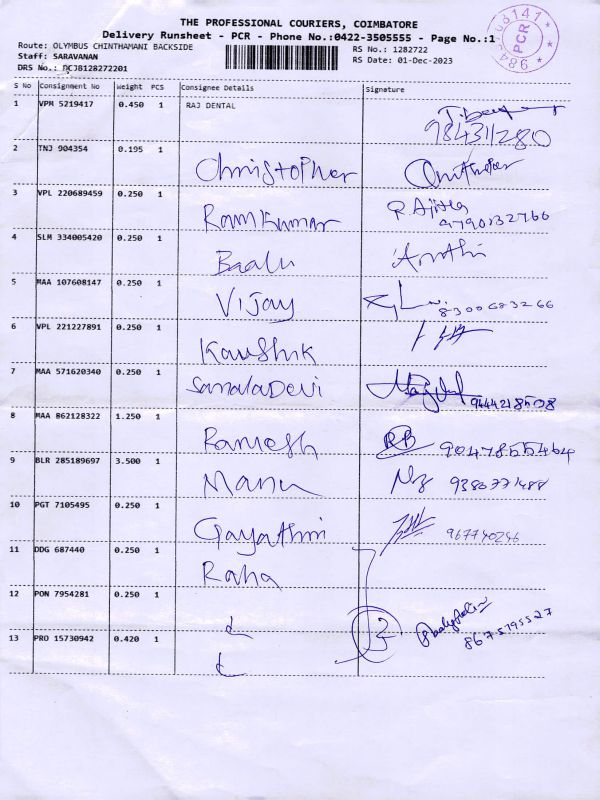 THE PROFESSIONAL COURIERS, COIMBATORE
Delivery Runsheet - PCR - Phone No.:0422-3505555 - Page No.:1
Route: OLYMBUS CHINTHAMANI BACKSIDE
RS No.: 1282722
Staff: SARAVANAN
RS Date: 01-Dec-2023
DRS No.: DCJB128272201
PCR
S No Consignment No Weight PCS Consignee Details Signature
1 VPM 5219417 0.450 1 RAJ DENTAL
984311280
2 TNJ 904354 0.195 1 Christopher
3 VPL 220689459 0.250 1 Ramkumar R. Ajitha
9790132766
4 SLM 334005420 0.250 1 Baalu
5 MAA 107608147 0.250 1 Vijay
8300683266
6 VPL 221227891 0.250 1 Kaushik
7 MAA 571620340 0.250 1 SamalaDevi
9444218508
8 MAA 862128322 1.250 1 Ramesh RB 9047855464
9 BLR 285189697 3.500 1 Manu 9380771488
10 PGT 7105495 0.250 1 Gayathri 967740246
11 DDG 687440 0.250 1 Raha
12 PON 7954281 0.250 1
3
8675795527
13 PRO 15730942 0.420 1